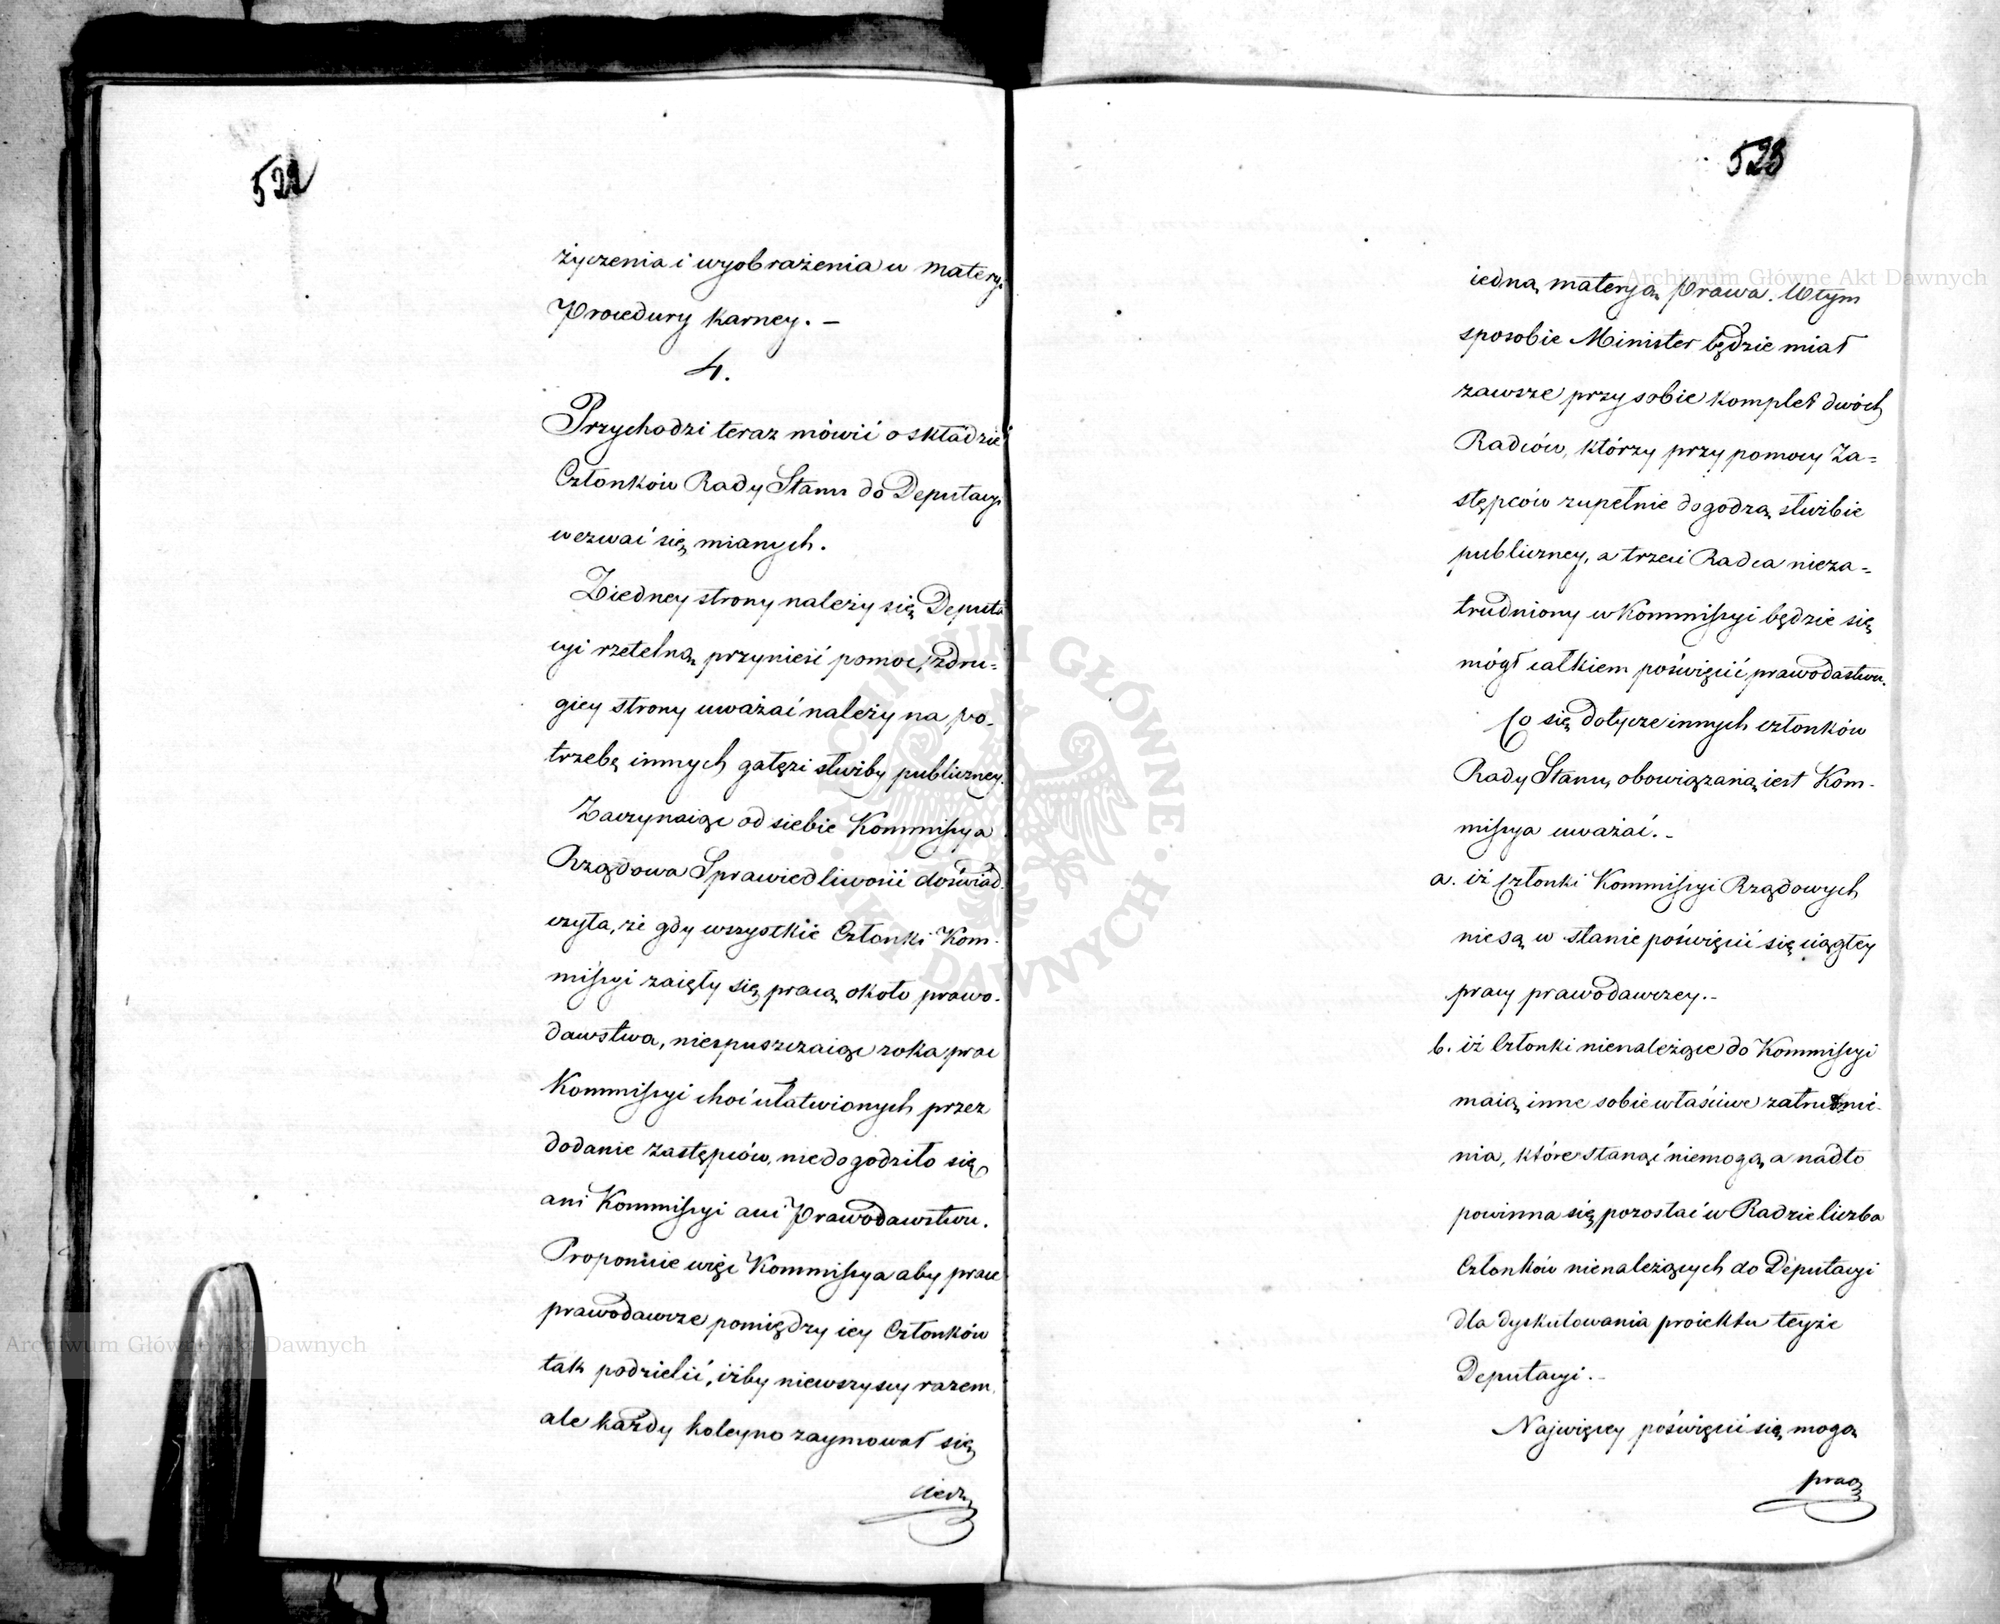 522
życzenia i wyobrażenia w matery
Procedury Karney. –
4.
Przychodzi teraz mówić o składzie
Członków Rady Stanu do Deputacyi
wezwać się mianych.
Ziedney strony należy się Deputa
cyi rzetelną przynieść pomoc, z dru=
giey strony uważać należy na po-
trzebę innych gałęzi służby publiczney.
Zaczynaiąc od siebie Kommissya
Rządowa Sprawiedliwości doświad-
czyła, że gdy wszystkie Członki Kom-
missyi zaięły się pracą około prawo-
dawstwa, niespuszczaiąc z oka prac
Kommissyi choć ułatwionych przez
dodanie Zastępców, niedogodziło się
ani Kommissyi ani Prawodawstwu.
Proponuie więc Kommissya aby prace
prawodawcze pomiędzy iey Członków
tak podzielić, iżby niewszyscy razem,
ale każdy koleyno zaymował się
iedną
523
iedną materyą Prawa. W tym
sposobie Minister będzie miał
zawsze przy sobie komplet dwóch
Radców, którzy przy pomocy Za=
stępców zupełnie dogodzą służbie
publiczney, a trzeci Radca nieza=
trudniony w Kommissyi będzie się
mógł całkiem poświęcić prawodastwu.
Co się dotycze innych członków
Rady Stanu, obowiązaną iest Kom-
missya uważać. –
a. iż Członki Kommissyi Rządowych
nie są w stanie poświęcić się ciągłey
pracy prawodawczey. –
b. iż Członki nienależące do Kommissyi
maią inne sobie właściwe zatrudnie-
nia, które stanąć niemogą, a nadto
powinna się pozostać w Radzie liczba
Członków nienależących do Deputacyi
dla dyskutowania proiektu teyże
Deputacyi. –
Najwięcey poświęcić się mogą
pracą
Archiwum Główne Akt Dawnych
Archiwum Główne Akt Dawnych
ARCHIWUM GŁÓWNE · AKT DAWNYCH ·